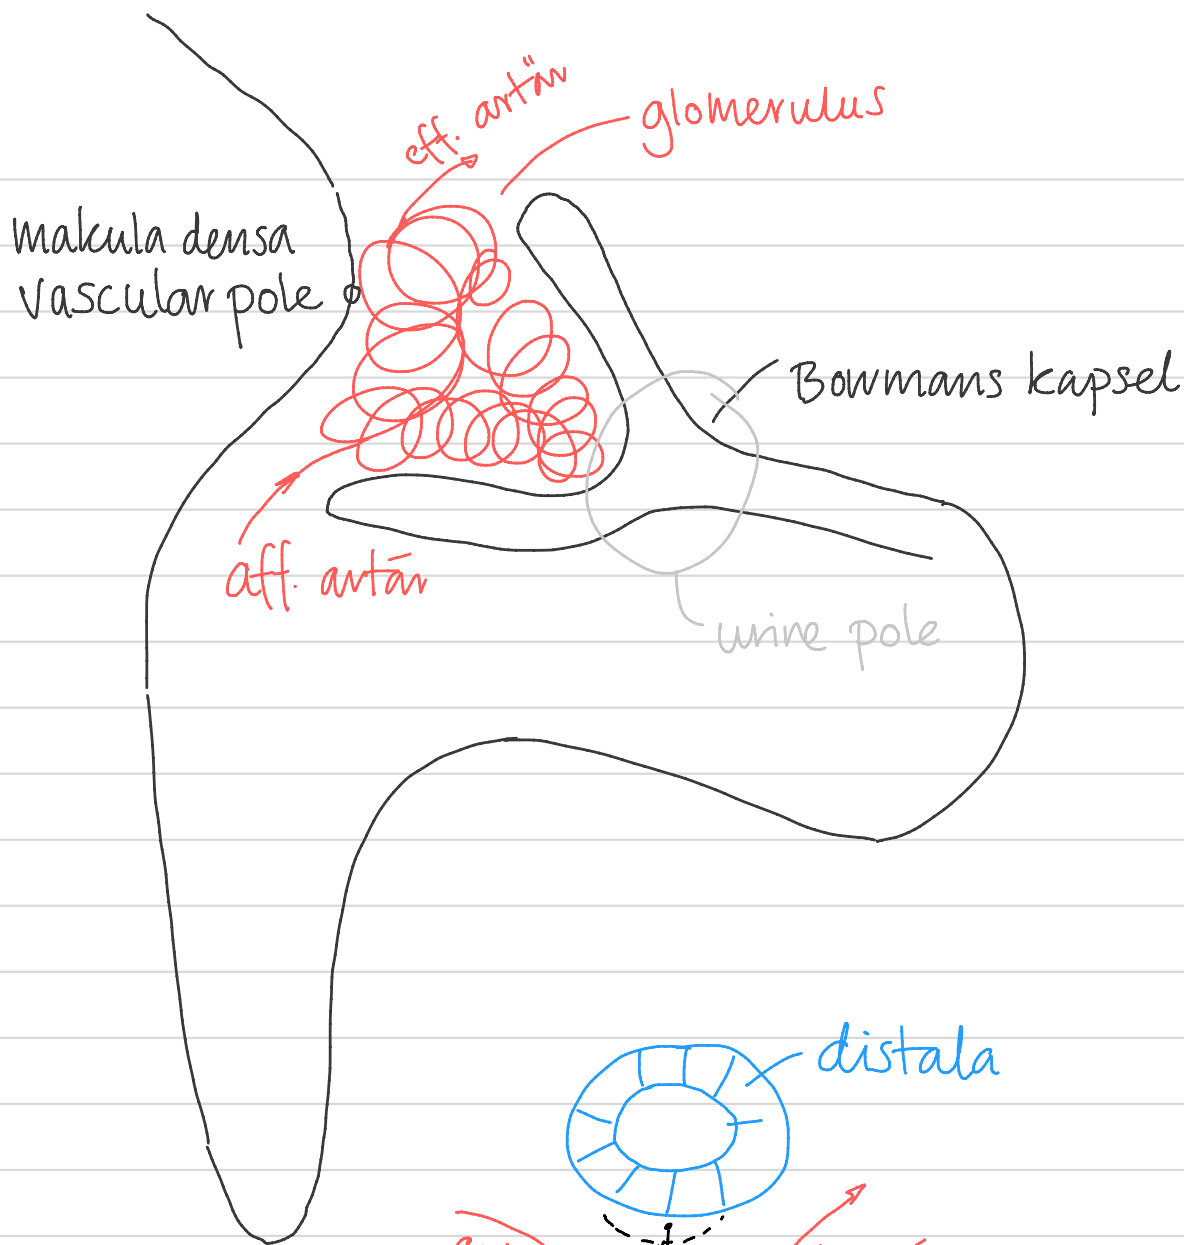 eff. artär
glomerulus
makula densa
vascular pole
Bowmans kapsel
aff. artär
urine pole
distala